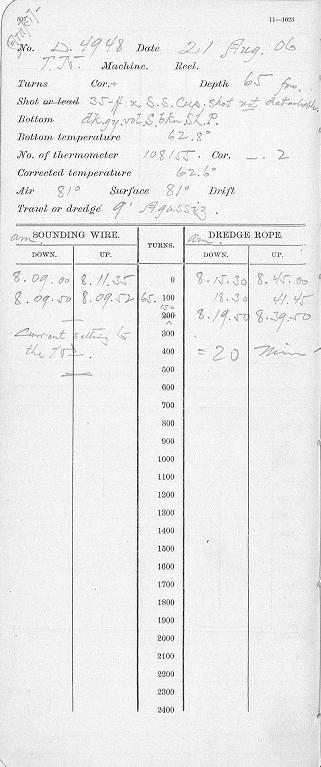 11—1023
No. D. 4948 Date 21 Aug. 06
T.N. Machine. Reel.
Turns Cor.+ Depth 65 fms.
Shot or lead 35-# x S.S. Cup. shot not detachable.
Bottom dk. gy. vol. S. bkn Sh. P.
Bottom temperature 62.8°
No. of thermometer 108155. Cor. —. 2
Corrected temperature 62.6°
Air 81° Surface 81° Drift
Trawl or dredge 9' Agassiz.
am. SOUNDING WIRE. TURNS. am. DREDGE ROPE.
DOWN. UP. DOWN. UP.
8.09.00 8.11.35 0 8.15.30 8.45.00
8.09.50 8.09.52 65. 100 18.30 41.45
150
200 8.19.50 8.39.50
Current setting to 300
the 400 = 20 Min
500
600
700
800
900
1000
1100
1200
1300
1400
1500
1600
1700
1800
1900
2000
2100
2200
2300
2400